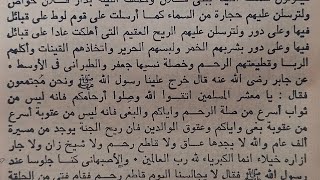 ولترسلن عليهم حجارة من السماء كما أرسلت على قوم لوط على قبائل
فيها وعلى دور ولترسلن عليهم الريح العقيم التي أهلكت عادا على قبائل
فيها وعلى دور بشربهم الخمر ولبسهم الحرير واتخاذهم القينات وأكلهم
الربا وقطيعتهم الرحم وخصلة نسيها جعفر والطبراني في الأوسط
عن جابر رضي الله عنه قال خرج علينا رسول الله ﷺ ونحن مجتمعون
فقال : يا معشر المسلمين اتقوا الله وصلوا أرحامكم فانه ليس من
ثواب أسرع من صلة الرحم واياكم والبغى فانه ليس من عقوبة أسرع
من عقوبة بغى واياكم وعقوق الوالدين فان ريح الجنة يوجد من مسيرة
ألف عام والله لا يجدها عاق ولا قاطع رحم ولا شيخ زان ولا جار
ازاره خيلاء انما الكبرياء لله رب العالمين ، والأصبهانى كنا جلوسا عند
رسول الله ﷺ فقال لا يجالسنا اليوم قاطع رحم فقام فتى من الحلقة